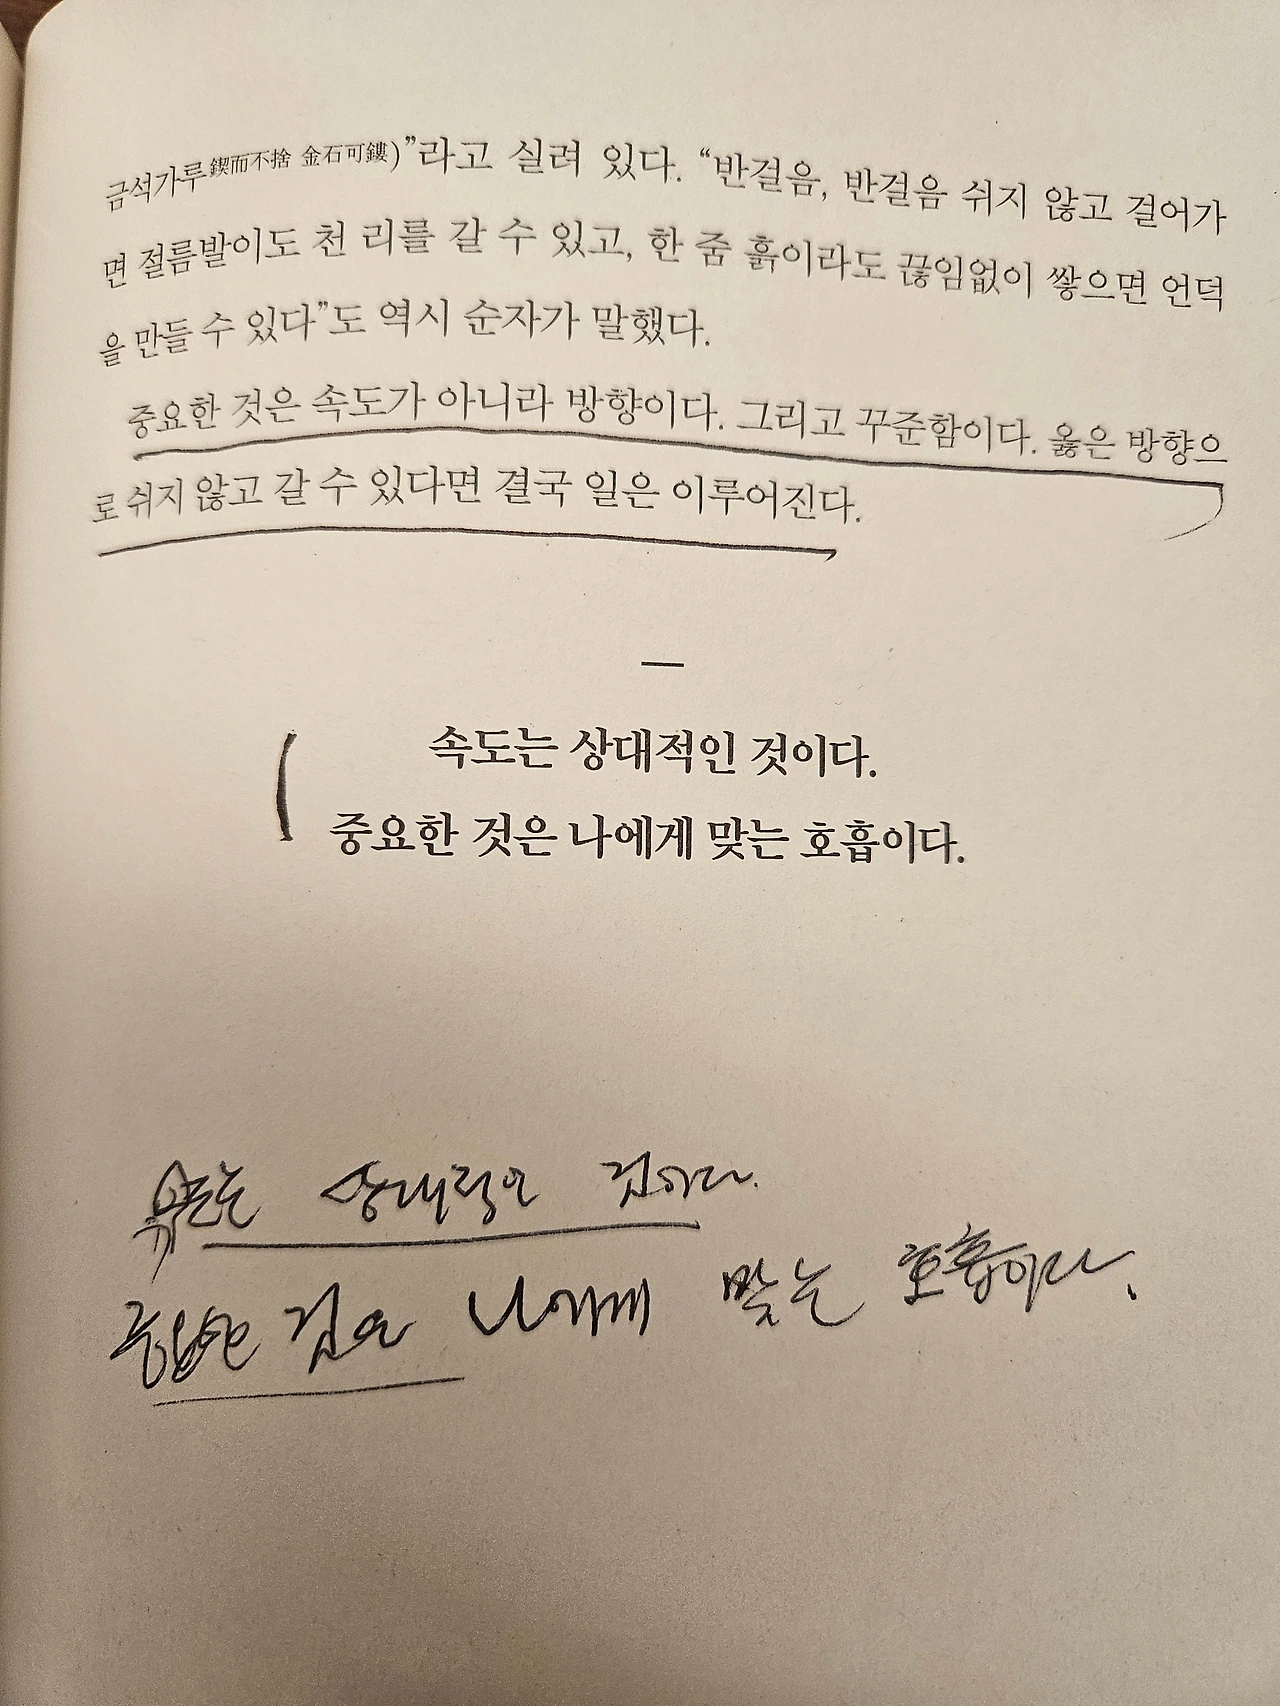 금석가루鍥而不捨 金石可鏤)”라고 실려 있다. “반걸음, 반걸음 쉬지 않고 걸어가
면 절름발이도 천 리를 갈 수 있고, 한 줌 흙이라도 끊임없이 쌓으면 언덕
을 만들 수 있다”도 역시 순자가 말했다.
중요한 것은 속도가 아니라 방향이다. 그리고 꾸준함이다. 옳은 방향으
로 쉬지 않고 갈 수 있다면 결국 일은 이루어진다.
속도는 상대적인 것이다.
중요한 것은 나에게 맞는 호흡이다.
속도는 상대적인 것이다.
중요한 것은 나에게 맞는 호흡이다.